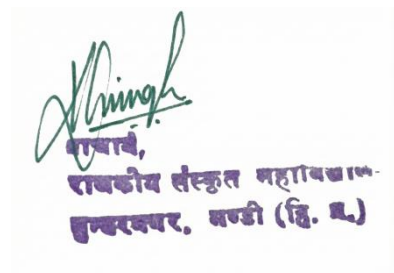 प्राचार्य,
राजकीय संस्कृत महाविद्याल-
सुन्दरनगर, मण्डी (हि. प्र.)